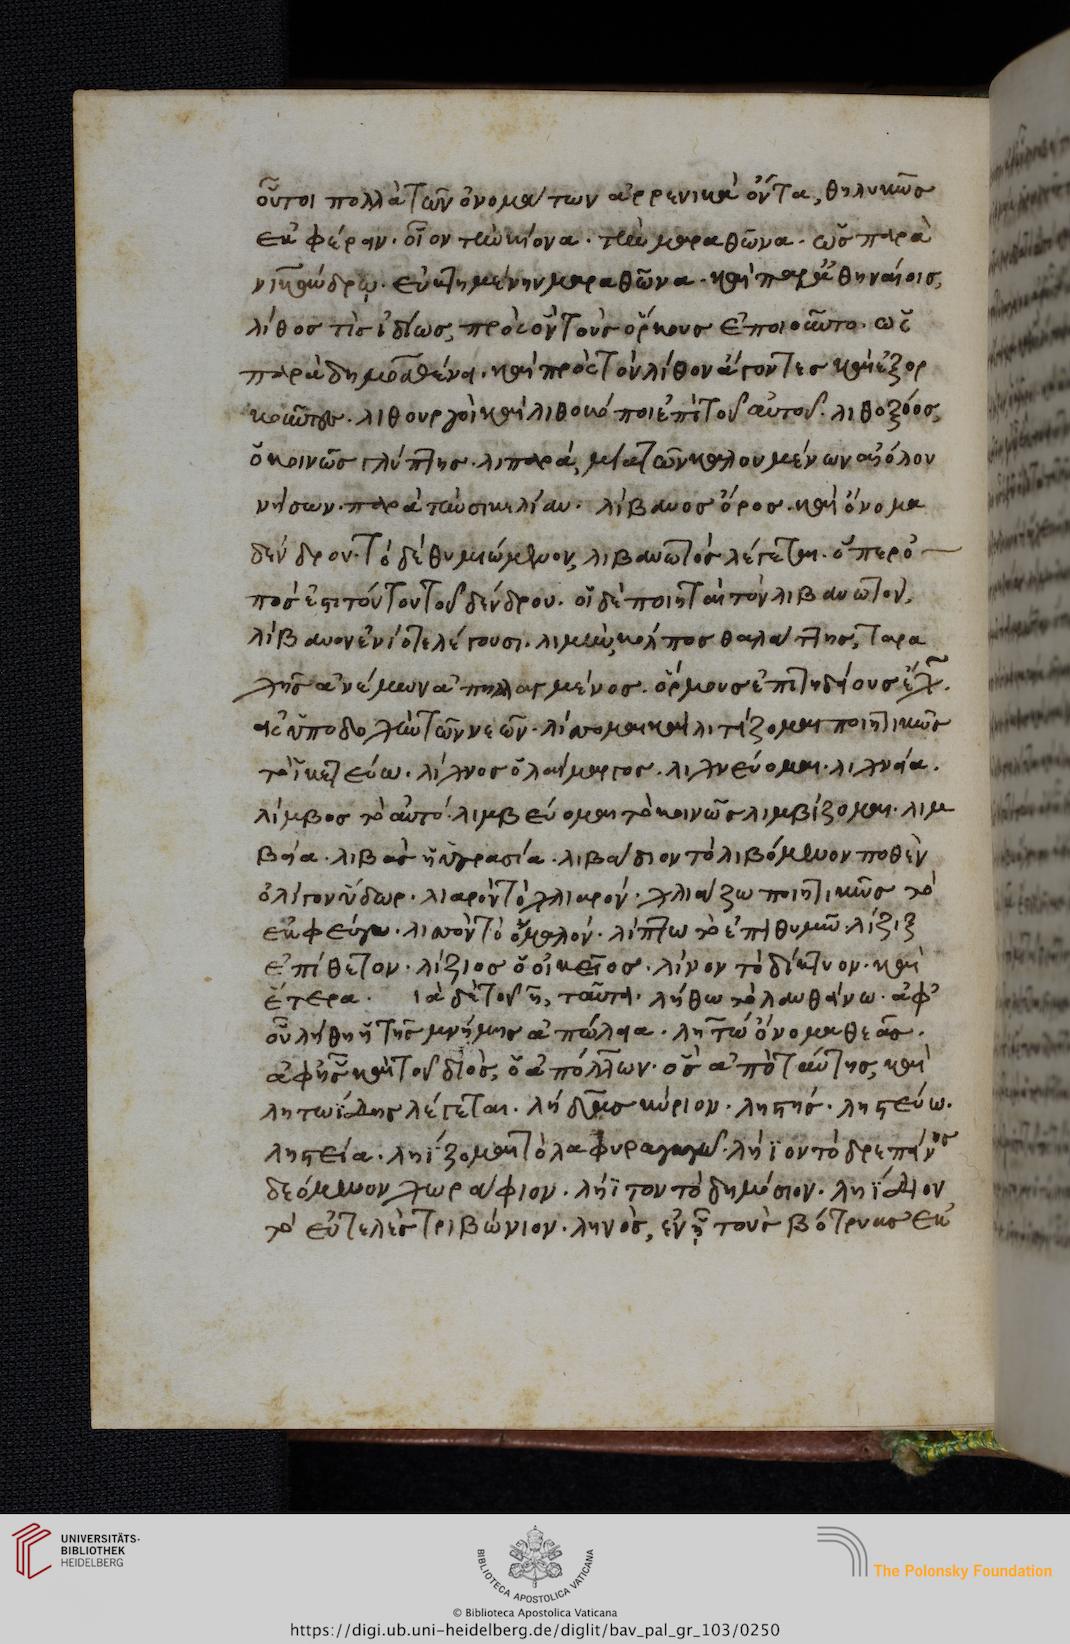 οὗτοι πολλὰ τῶν ὀνομάτων ἀρρενικὰ ὄντα, θηλυκῶς
ἐκφέρειν· οἷον τὴν κίονα· τὴν μαραθῶνα· ὡς παρὰ
νικάνδρῳ· ἐυκτημένην μαραθῶνα· καὶ παρ' ἀθηναίοις,
λίθος τὶς ἰδίως, πρὸς ὃν τοὺς ὅρκους ἐποιοῦντο· ὡς
παρὰ δημοσθένει· καὶ πρὸς τὸν λίθον ἄγοντες καὶ ἐξορ
κοῦντες· λιθουργοὶ καὶ λιθοκόποι ἐπὶ τοῦ αὐτοῦ· λιθοξόος,
ὁ κοινῶς γλύπτης· λιπαρά, μία τῶν καλουμένων αἰόλου
νήσων· παρὰ τὴν σικελίαν· λίβανος ὄρος· καὶ ὄνομα
δένδρου· τὸ δὲ θυμιώμενον, λιβανωτὸς λέγεται· ὅπερ ὀ
πός ἐστι τούτου τοῦ δένδρου· οἱ δὲ ποιηταὶ τὸν λιβανωτὸν,
λίβανον ἐνίοτε λέγουσι· λιμὴν, κόλπος θαλάττης, ταρα
χῆς ἀνέμων ἀπηλλαγμένος· ὅρμους ἐπιτηδείους ἔχ
εις ὑποδοχὴν τῶν νεῶν· λίτομαι καὶ λιτάζομαι ποιητικῶς
τὸ ἱκετεύω· λίχνος ὁ λαίμαργος· λιχνεύομαι· λιχνεία·
λίμβος τὸ αὐτό· λιμβεύομαι τὸ κοινῶς λιμβίζομαι· λιμ
βεία· λιβὰς ἡ ὑγρασία· λιβάδιον τὸ λιβόμενον ποθὲν
ὀλίγον ὕδωρ· λιαρὸν τὸ χλιαρόν· λιάζω ποιητικῶς τὸ
ἐκφεύγω· λιτὸν τὸ ὁμαλόν· λίπτω τὸ ἐπιθυμῶ· λίζιξ
ἐπίθετον· λίζιος ὁ οἰκεῖος· λίνον τὸ δίκτυον· καὶ
ἕτερα· τὰ δὲ τοῦ η, ταῦτα· λήθω τὸ λανθάνω· ἀφ'
οὗ λήθη ἡ τῆς μνήμης ἀπώλεια· λητώ ὄνομα θεᾶς·
ἀφ' ἧς καὶ τοῦ διὸς, ὁ ἀπόλλων· ὃς ἀπὸ ταύτης, καὶ
λητωΐδης λέγεται· λήδας κύριον· ληστής· ληστεύω·
ληστεία· ληΐζομαι τὸ λαφυραγωγῶ· λήϊον τὸ δρεπάνου
δεόμενον χωράφιον· λήϊτον τὸ δημόσιον· ληΐδιον
τὸ εὐτελὲς τριβώνιον· ληνὸς, ἐν ᾗ τοὺς βότρυας ἐκ
UNIVERSITÄTS-
BIBLIOTHEK
HEIDELBERG
BIBLIOTECA APOSTOLICA VATICANA
The Polonsky Foundation
© Biblioteca Apostolica Vaticana
https://digi.ub.uni-heidelberg.de/diglit/bav_pal_gr_103/0250